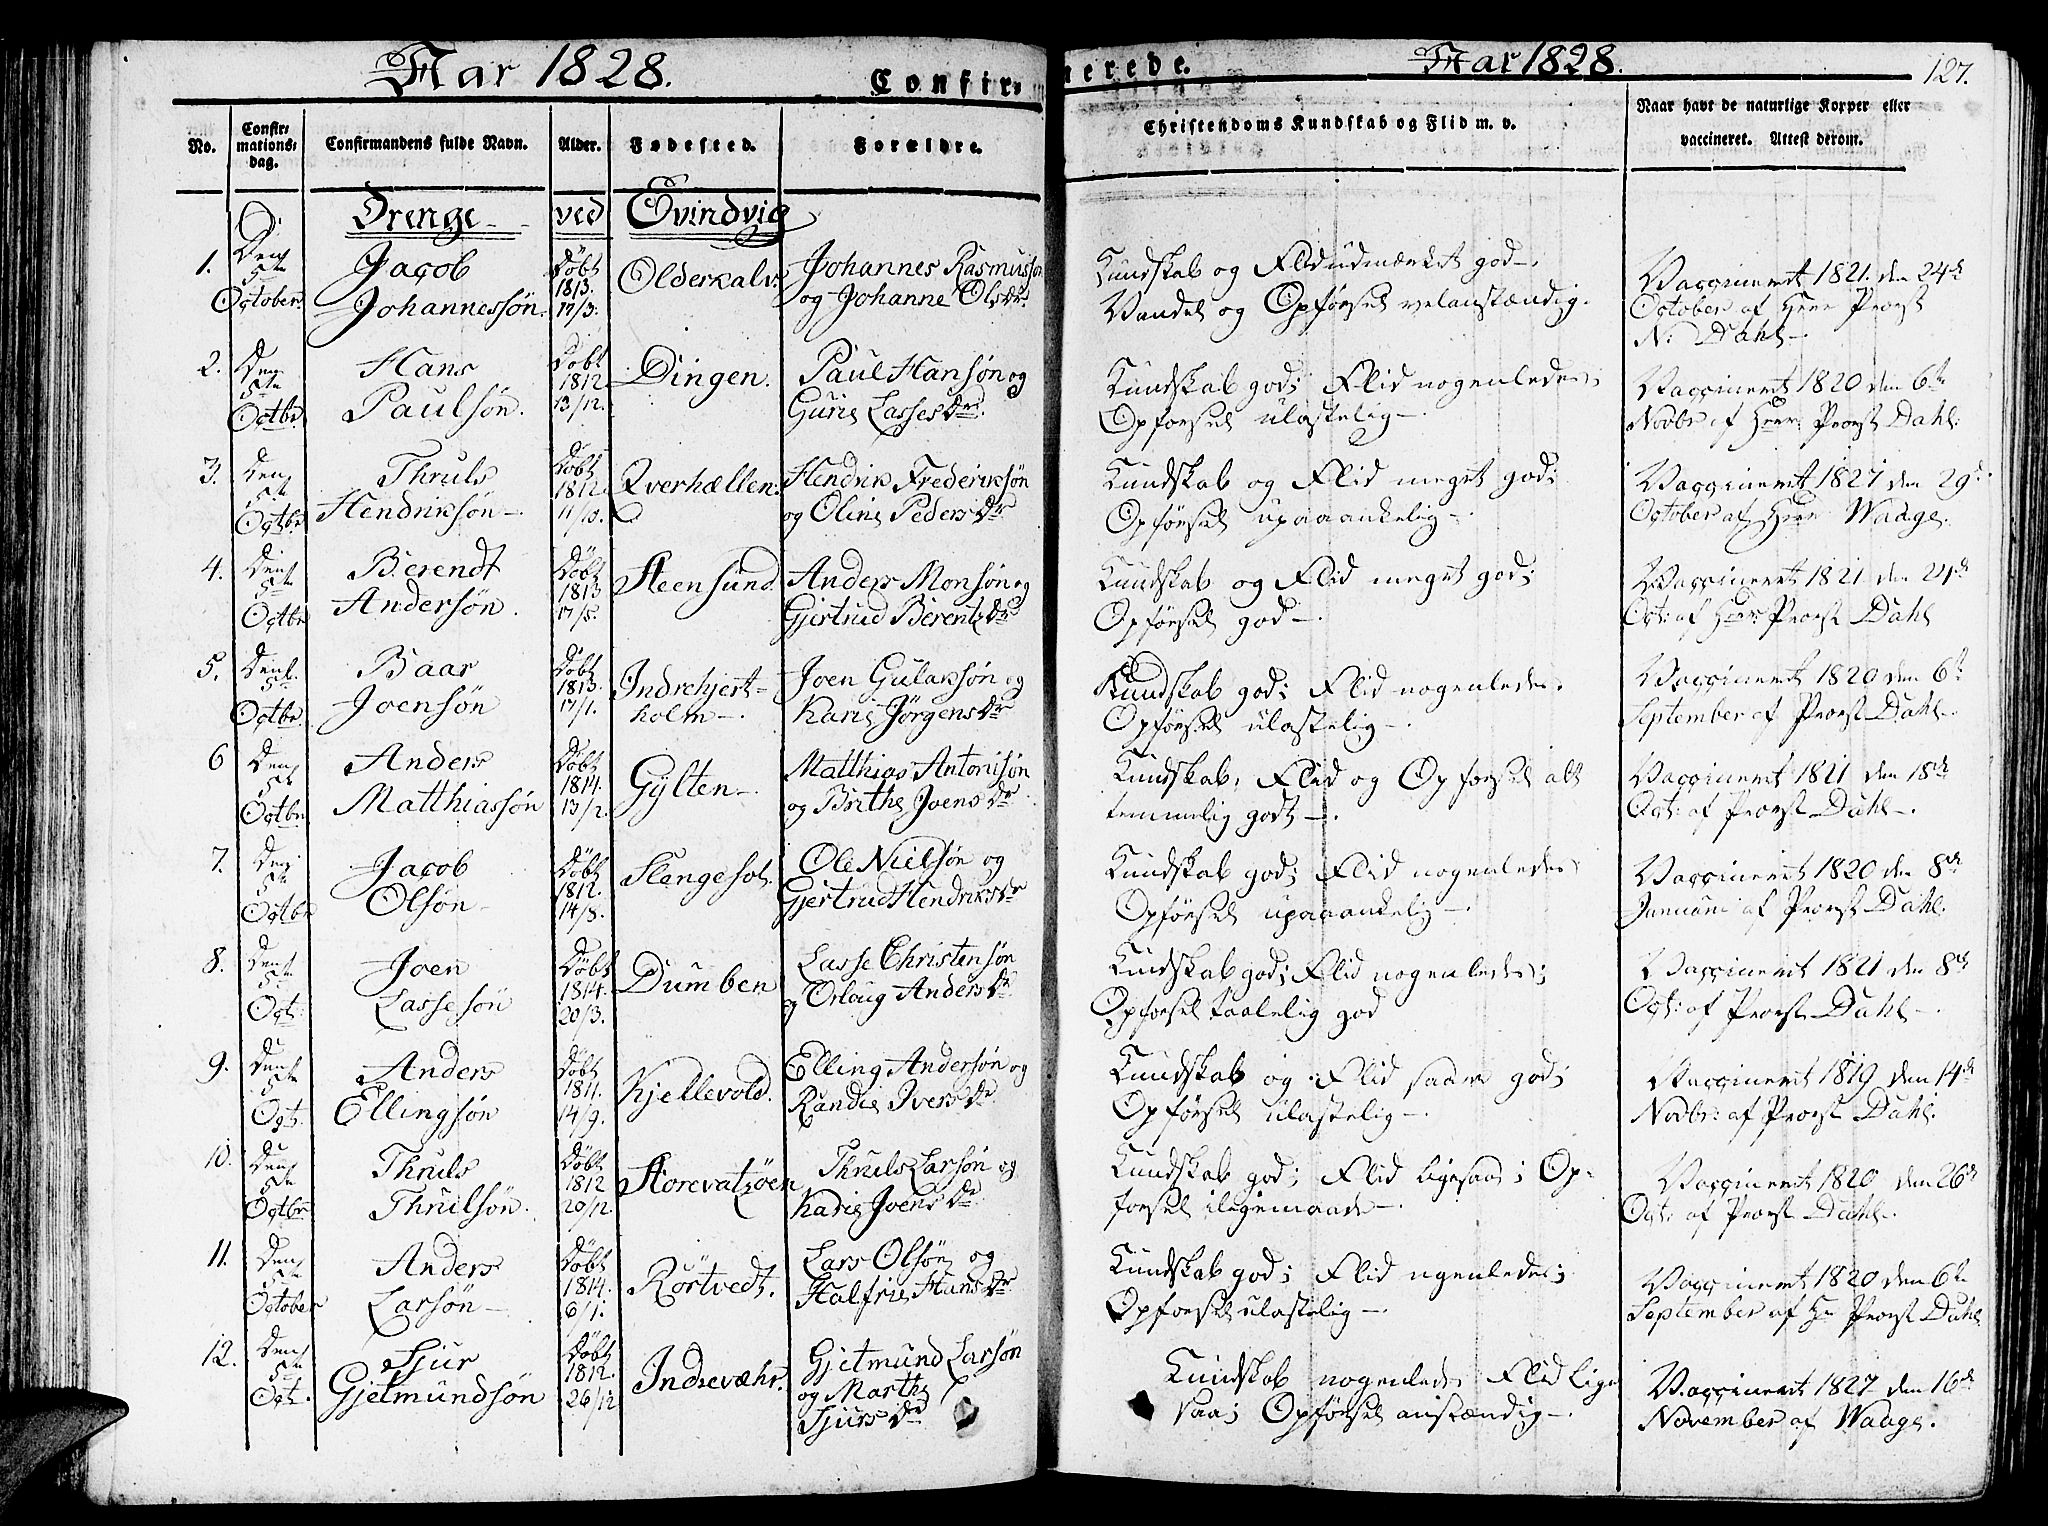 Aar 1828.
Confir-
merede.
Aar 1828.
127.
No.
Confir-
mations-
dag.
Confirmandens fulde Navn.
Alder.
Fødested.
Forældre.
Christendoms Kundskab og Flid m. v.
Naar havt de naturlige Kopper eller
vaccineret. Attest derom.
Drenge ved Evindvig
1. Den 5te October. Jacob Johannessøn. Døbt 1813. 17/3. Olderkalv. Johannes Rasmussøn og Johanne Olsdr.
Kundskab og Flid udmærket god.
Vandel og Opførsel velanstændig.
Vaccineret 1821. den 24de
October af Herr Provst
N: Dahl.
2. Den 5te Octbr. Hans Paulsøn. Døbt 1812. 13/12. Dingen. Paul Hansøn og Gurie Lasses Dr.
Kundskab god; Flid nogenledes;
Opførsel ulastelig.
Vaccineret 1820 den 6te
Novbr af Herr Provst Dahl.
3. Den 5te Octbr. Thruls Hendriksøn. Døbt 1812. Qverhællen. Hendrik Frederiksøn og Oline Peders Dr.
Kundskab og Flid meget god;
Opførsel upaaankelig.
Vaccineret 1827 den 29de
October af Herr Waage.
4. Den 5te Octbr Berendt Andersøn. Døbt 1813 17/5. Steensund. Anders Monsøn og Gjertrud Berentz Dr
Kundskab og Flid meget god;
Opførsel god.
Vaccineret 1821 den 24de
Oct: af Herr Provst Dahl
5. Den 5te Octbr. Baar Joensøn Døbt 1813. 17/1. Indrehjertholm. Joen Gulaksøn og Karie Jørgens Dr
Kundskab god; Flid nogenledes.
Opførsel ulastelig.
Vaccineret 1820 den 6te
September af Provst Dahl.
6 Den 5te Octbr. Anders Matthiassøn Døbt 1814. 13/2. Gylten. Matthias Antonisøn og Brithe Joens Dr
Kundskab, Flid og Opførsel alt
temmelig godt.
Vaccineret 1821 den 18de
Oct: af Provst Dahl.
7. Den 5te Octbr Jacob Olsøn Døbt 1812. 14/8. Slengesol. Ole Nielsøn og Gjertrud Hendriks Dr
Kundskab god; Flid nogenledes
Opførsel upaaankelig.
Vaccineret 1820 den 8de
Januari af Provst Dahl.
8. Den 5te Oct: Joen Lassesøn Døbt 1814. 20/3. Dumben Lasse Christensøn og Orloug Anders Dr
Kundskab god; Flid nogenledes;
Opførsel taalelig god
Vaccineret 1821 den 8de
Oct: af Provst Dahl.
9. Den 5te Oct. Anders Ellingsøn Døbt 1811. 14/9. Kjellevold. Elling Andersøn og Randie Ivers Dr
Kundskab og Flid saare god;
Opførsel ulastelig.
Vaccineret 1819 den 14de
Novbr: af Provst Dahl.
10. Den 5te Octbr Thruls Thrulsøn. Døbt 1812 20/12. Storevatzøen Thruls Larsøn og Karie Joens Dr
Kundskab god; Flid ligesaa; Op-
førsel iligemaade.
Vaccineret 1820 den 26de
Oct: af Provst Dahl.
11. Den 5te October Anders Larsøn Døbt 1814. 6/1. Rørtvedt. Lars Olsøn og Halfrie Hans Dr
Kundskab god; Flid ngenledes;
Opførsel ulastelig.
Vaccineret 1820 den 6te
September af Hr Provst Dahl
12. Den 5te Oct. Sjur Gjetmundsøn Døbt 1812. 26/12 Indrevæhr. Gjetmund Larsøn og Marthe Sjurs Dr
Kundskab nogenledes Flid lige
saa; Opførsel anstændig.
Vaccineret 1827 den 16de
November af Waage.